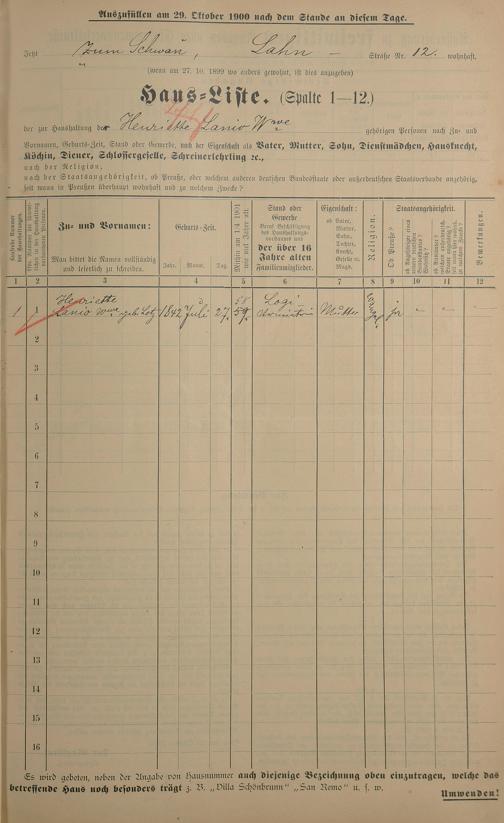 Auszufüllen am 29. Oktober 1900 nach dem Stande an diesem Tage.
Jetzt Zum Schwan, Lahn – Straße Nr. 12. wohnhaft.
(wenn am 27. 10. 1899 wo anders gewohnt, ist dies anzugeben)
Haus-Liste. (Spalte 1—12.)
der zur Haushaltung der Henriette Lanio Wwe gehörigen Personen nach Zu- und
Vornamen, Geburts-Zeit, Stand oder Gewerbe, nach der Eigenschaft als Vater, Mutter, Sohn, Dienstmädchen, Hausknecht,
Köchin, Diener, Schlossergeselle, Schreinerlehrling ec.,
nach der Religion,
nach der Staatsangehörigkeit, ob Preuße, oder welchem anderen deutschen Bundesstaate oder außerdeutschen Staatsverbande angehörig,
seit wann in Preußen überhaupt wohnhaft und zu welchem Zwecke?
Zu- und Vornamen:
Man bittet die Namen vollständig und leserlich zu schreiben.
Geburts-Zeit.
Jahr. Monat. Tag.
Stand oder Gewerbe
der über 16 Jahre alten
Familienmitglieder.
Eigenschaft:
ob Vater, Mutter, Sohn, Tochter,
Magd.
Religion.
Staatsangehörigkeit.
Ob Preuße?
Bemerkungen.
1 2 3 4 5 6 7 8 9 10 11 12
Henriette 58 Logi-
1 1 Lanio Wwe 1842 Juli 27. 59. Mutter ja – –
2
3
4
5
6
7
8
9
10
11
12
13
14
15
16
Es wird gebeten, neben der Angabe von Hausnummer auch diejenige Bezeichnung oben einzutragen, welche das
betreffende Haus noch besonders trägt z. B. „Villa Schönbrunn" „San Remo" u. s. w.
Umwenden!